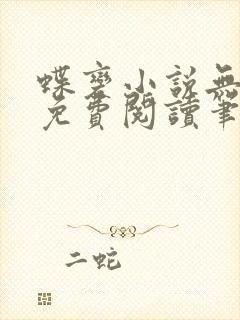 蝶變小說無
免費閱讀筆
二蛇